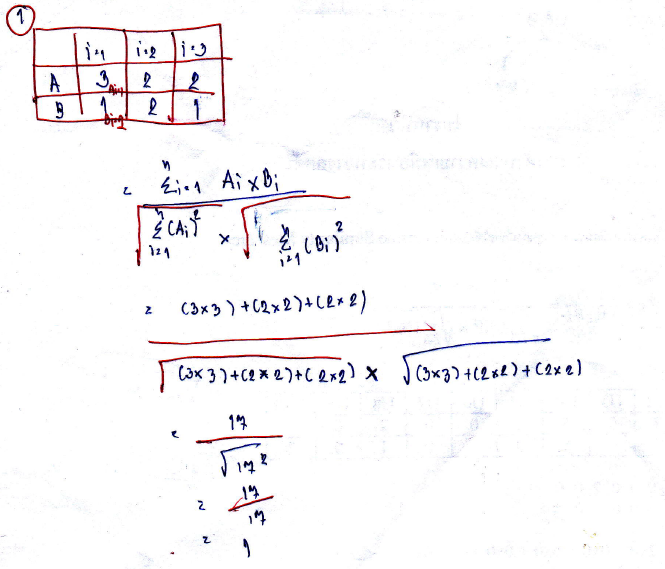 1
i=1 i=2 i=3
A 3 Ai=1 2 2
B 1 Bi=2 2 1
= Σⁿi=1 Ai × Bi
√Σⁿi=1 (Ai)² × √Σⁿi=1 (Bi)²
= (3×3)+(2×2)+(2×2)
√(3×3)+(2×2)+(2×2) × √(3×3)+(2×2)+(2×2)
= 17
√17²
= 17
17
= 1